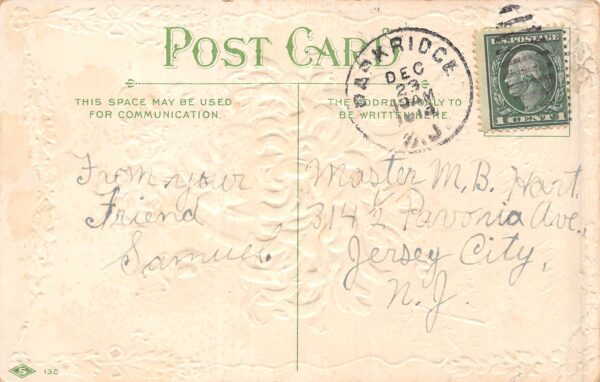 POST CARD
THIS SPACE MAY BE USED
FOR COMMUNICATION.
THE ADDRESS ONLY TO
BE WRITTEN HERE.
BASKRIDGE
DEC
23
10AM
N.J.
U.S. POSTAGE
1 CENT 1
From your
Friend
Samuel.
Master M. B. Hart.
314 1/2 Pavonia Ave.,
Jersey City,
N. J.
S 136